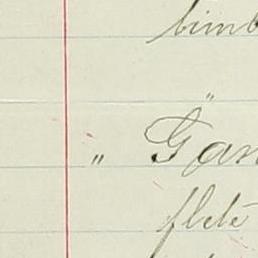 bimb
" Gän
flete